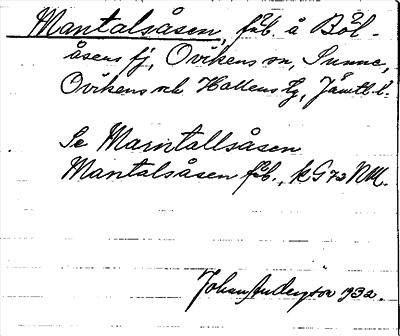 Mantalsåsen, fäb. å Böl-
åsens fj, Ovikens sn, Sunne,
Ovikens och Hallens tg, Jämtl. l.
Se Marntallsåsen
Mantalsåsen fäb., kG 72 NM.
Johan Anderzton 1932.